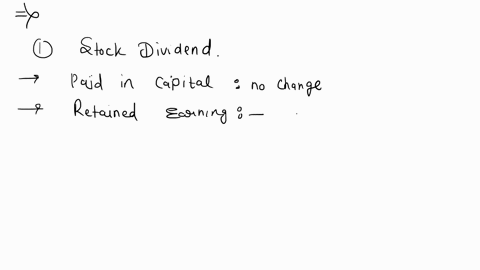 ⇒
① Stock Dividend.
→ Paid in Capital : no change
→ Retained Earning : —